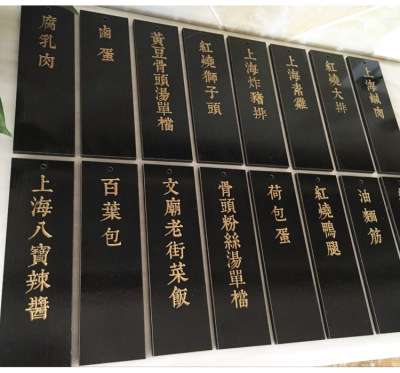 腐乳肉
鹵蛋
黃豆骨頭湯單檔
紅燒獅子頭
上海炸豬排
上海素雞
紅燒大排
上海鹹肉
上海八寶辣醬
百葉包
文廟老街菜飯
骨頭粉絲湯單檔
荷包蛋
紅燒鴨腿
油麵筋